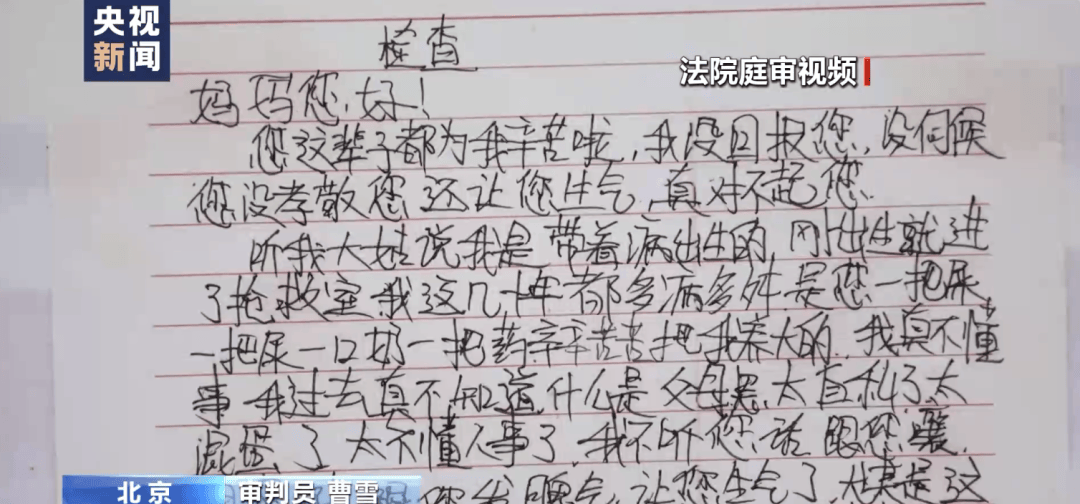 央视
新闻
法院庭审视频
检查
妈妈您好!
您这辈子都为我辛苦啦,我没回报您,没伺候
您没孝敬您还让您生气,真对不起您.
听我大姑说我是带着病出生的,刚出生就进
了抢救室.我这几十年都多病多灾是您一把屎
一把尿一口奶一把药辛辛苦苦把我养大的.我真不懂
事.我过去真不知道什么是父母恩,太自私了,太
混蛋了,太不懂人事了,我不听您话跟您嚷,
您我脾气,让您生气了,尤其是这
北京 审判员 曹雪